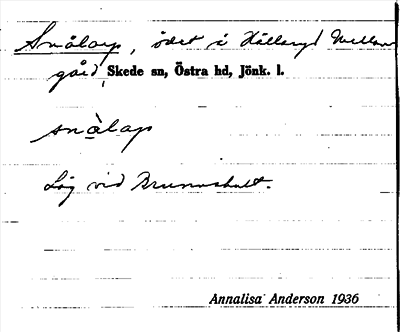 Smålarp, ödet i Hållaryd Mellan
gård, Skede sn, Östra hd, Jönk. l.
smàlap
Låg vid Brunnshult.
Annalisa Anderson 1936